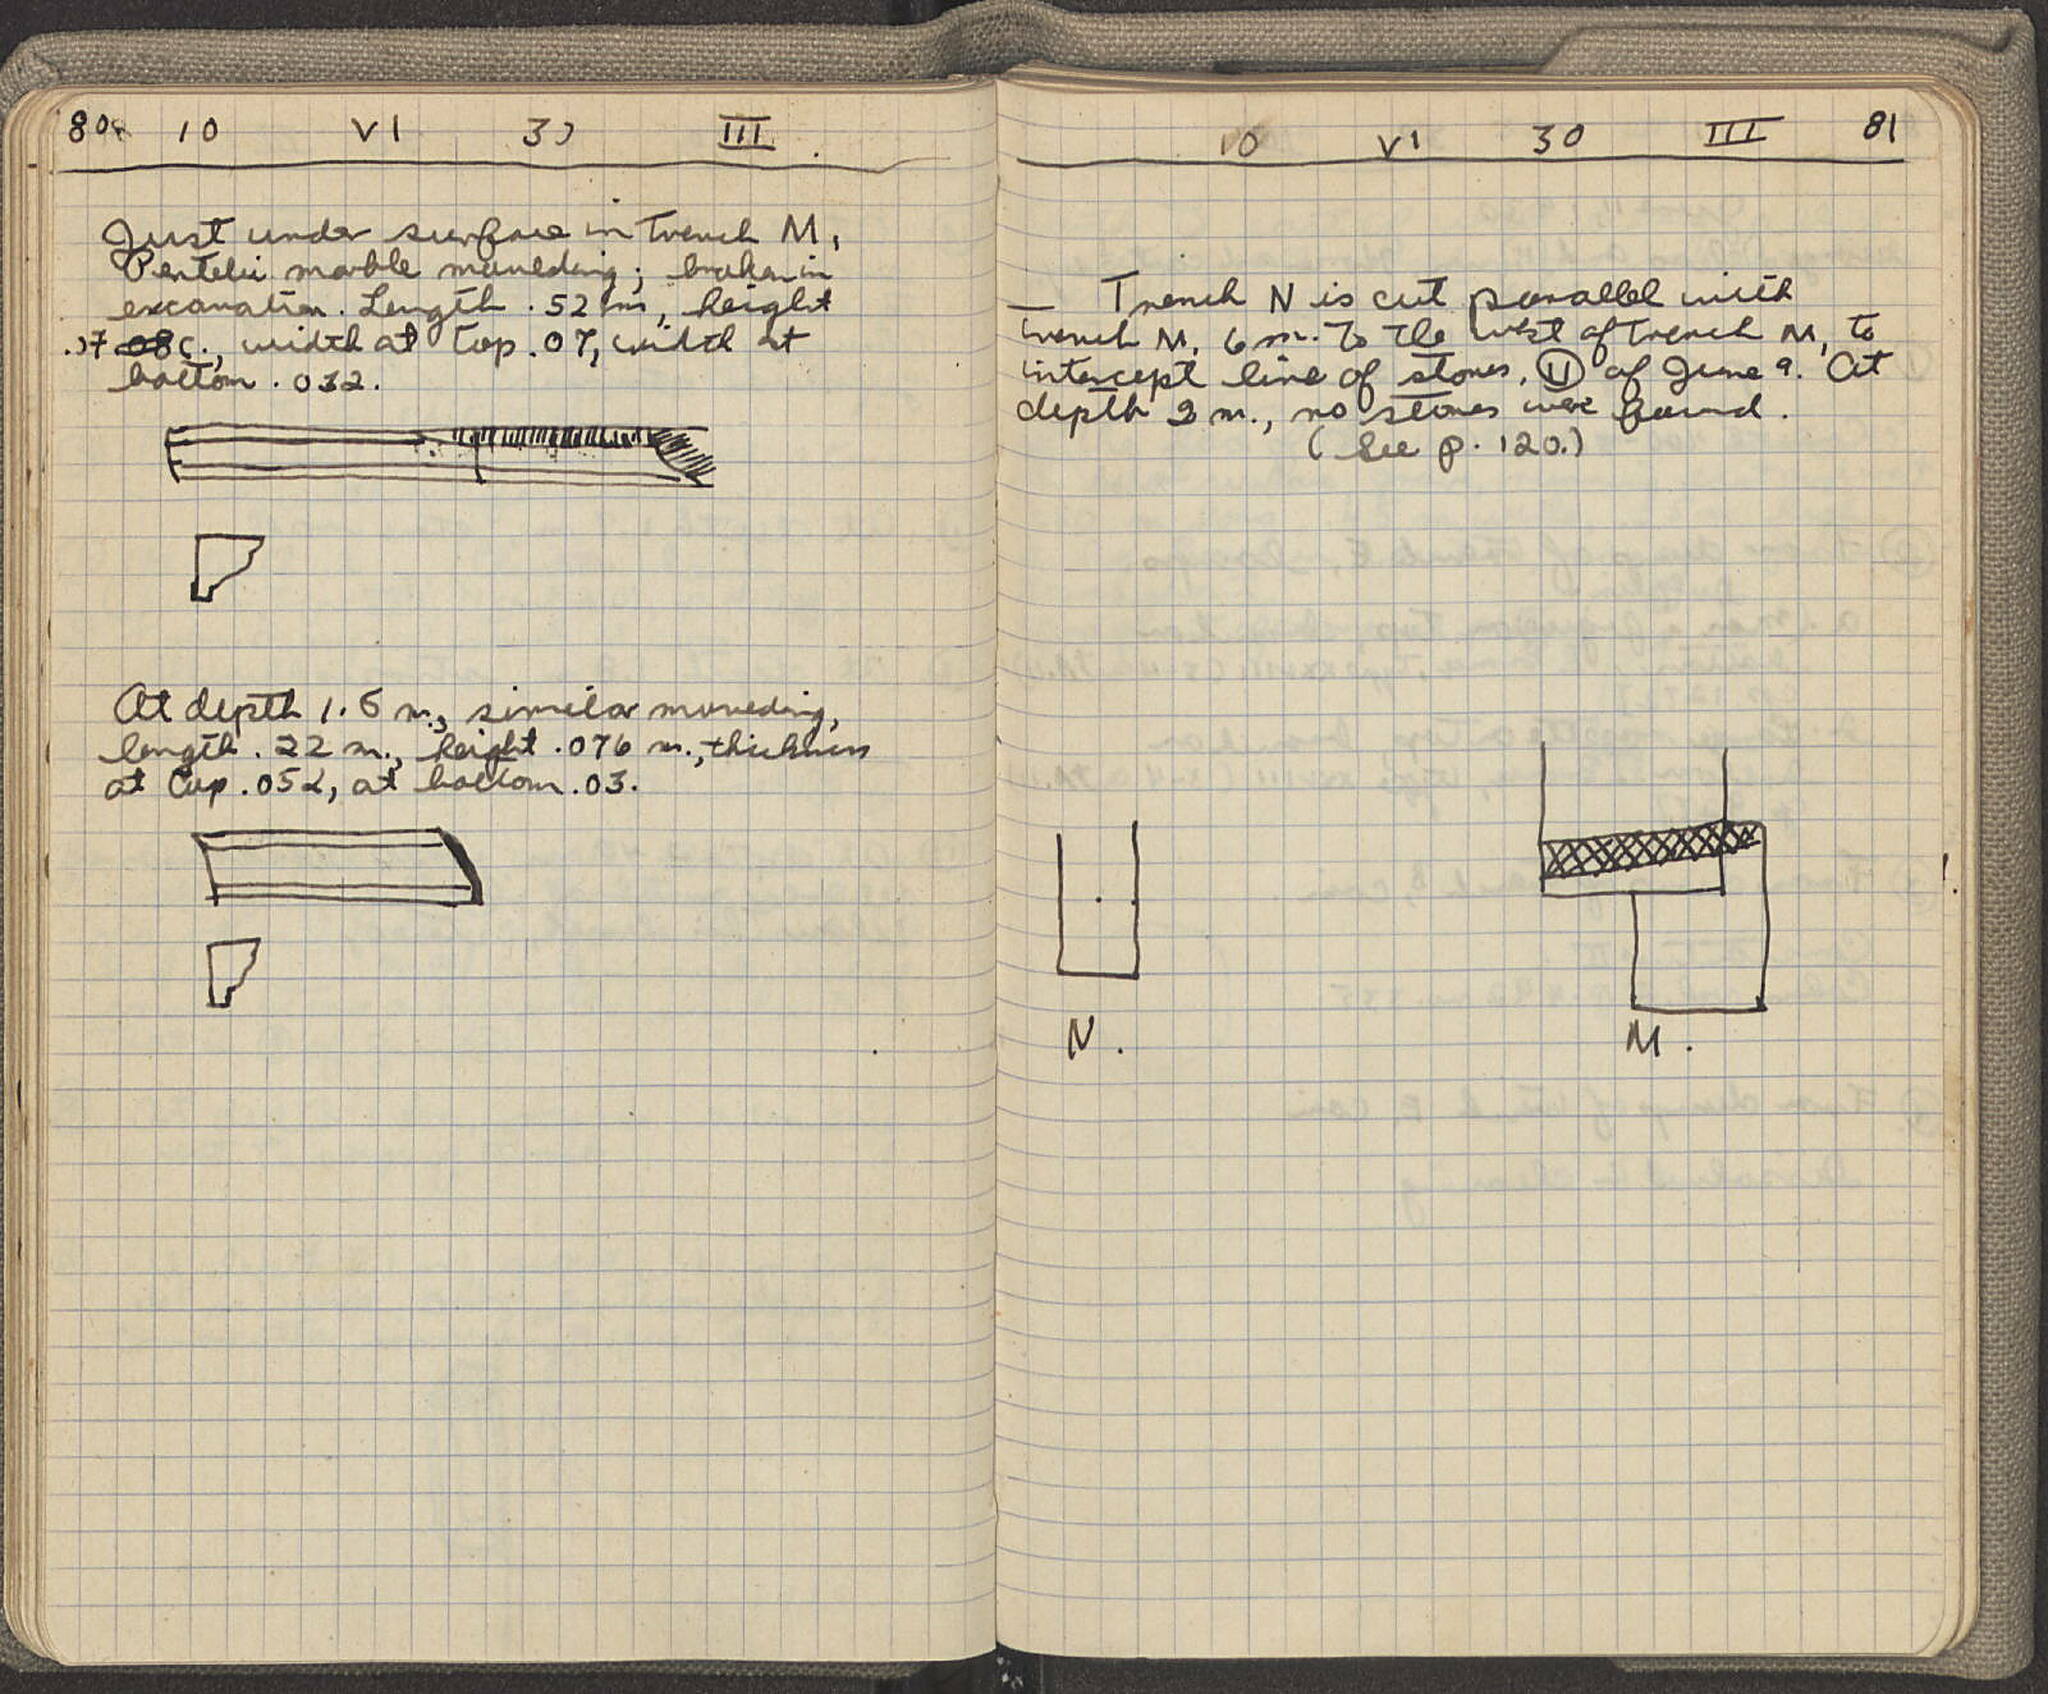 80 10 VI 30 III
Just under surface in Trench M,
Pentelic marble moulding; broken in
excavation. Length .52 m, height
.07, width at top .07, width at
bottom .032.
At depth 1.5 m., similar moulding,
length .22 m., height .076 m., thickness
at top .052, at bottom .03.
10 VI 30 III 81
— Trench N is cut parallel with
trench M, 6 m. to the west of trench M, to
intercept line of stones, 11 of June 9. At
depth 2 m., no stones were found.
(See p. 120.)
N. M.